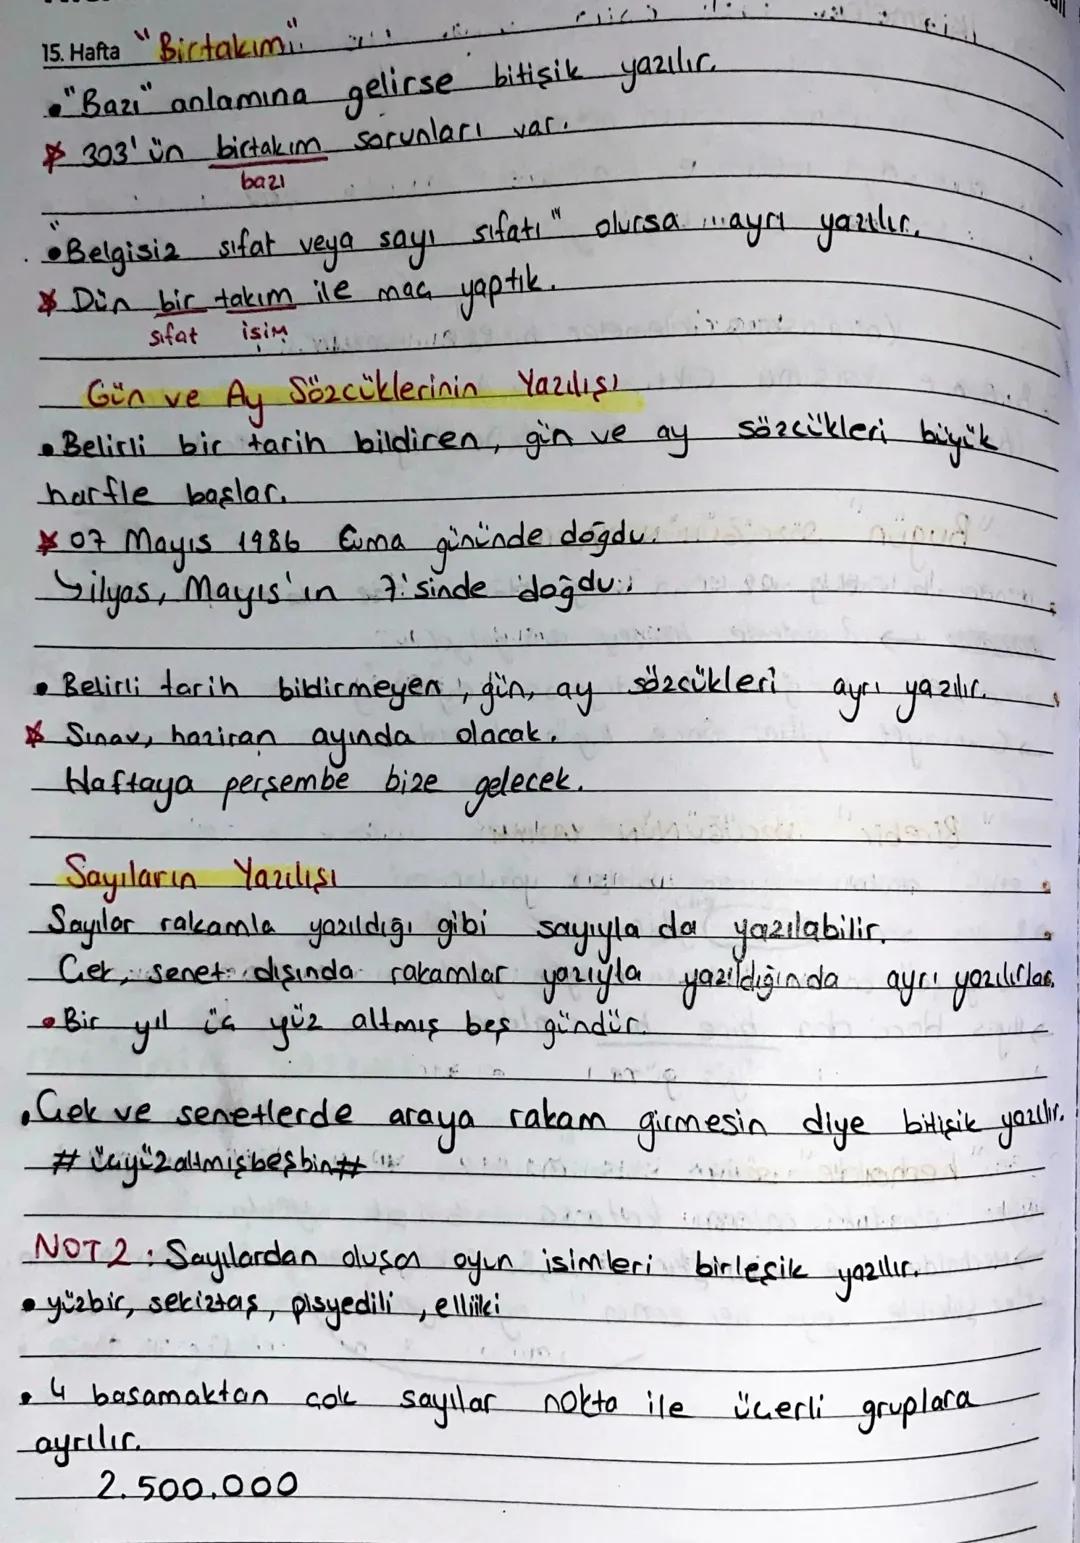 15. Hafta "Birtakım"
• "Bazı" anlamına gelirse bitişik yazılır.
* 303'ün birtakım sorunları var.
bazı
• "Belgisiz sıfat veya sayı sıfatı" olursa ayrı yazılır.
* Dün bir takım ile maç yaptık.
sıfat isim
Gün ve Ay Sözcüklerinin Yazılışı
• Belirli bir tarih bildiren, gün ve ay sözcükleri büyük
harfle başlar.
* 07 Mayıs 1986 Cuma gününde doğdu.
↳ ilyas, Mayıs'ın 7'sinde doğdu.
• Belirli tarih bildirmeyen, gün, ay sözcükleri ayrı yazılır.
* Sınav, haziran ayında olacak.
Haftaya perşembe bize gelecek.
Sayıların Yazılışı
Sayılar rakamla yazıldığı gibi sayıyla da yazılabilir.
Çek, senet dışında rakamlar yazıyla yazıldığında ayrı yazılırlar.
• Bir yıl üç yüz altmış beş gündür.
• Çek ve senetlerde araya rakam girmesin diye bitişik yazılır.
# üçyüzaltmışbeşbin #
NOT 2 : Sayılardan oluşan oyun isimleri birleşik yazılır.
• yüzbir, sekiztaş, pisyedili, elliiki
• 4 basamaktan çok sayılar nokta ile üçerli gruplara
ayrılır.
2.500.000